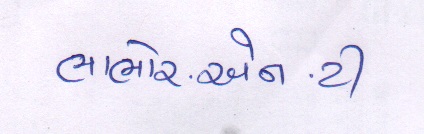 ભાભોર.એન.ટી